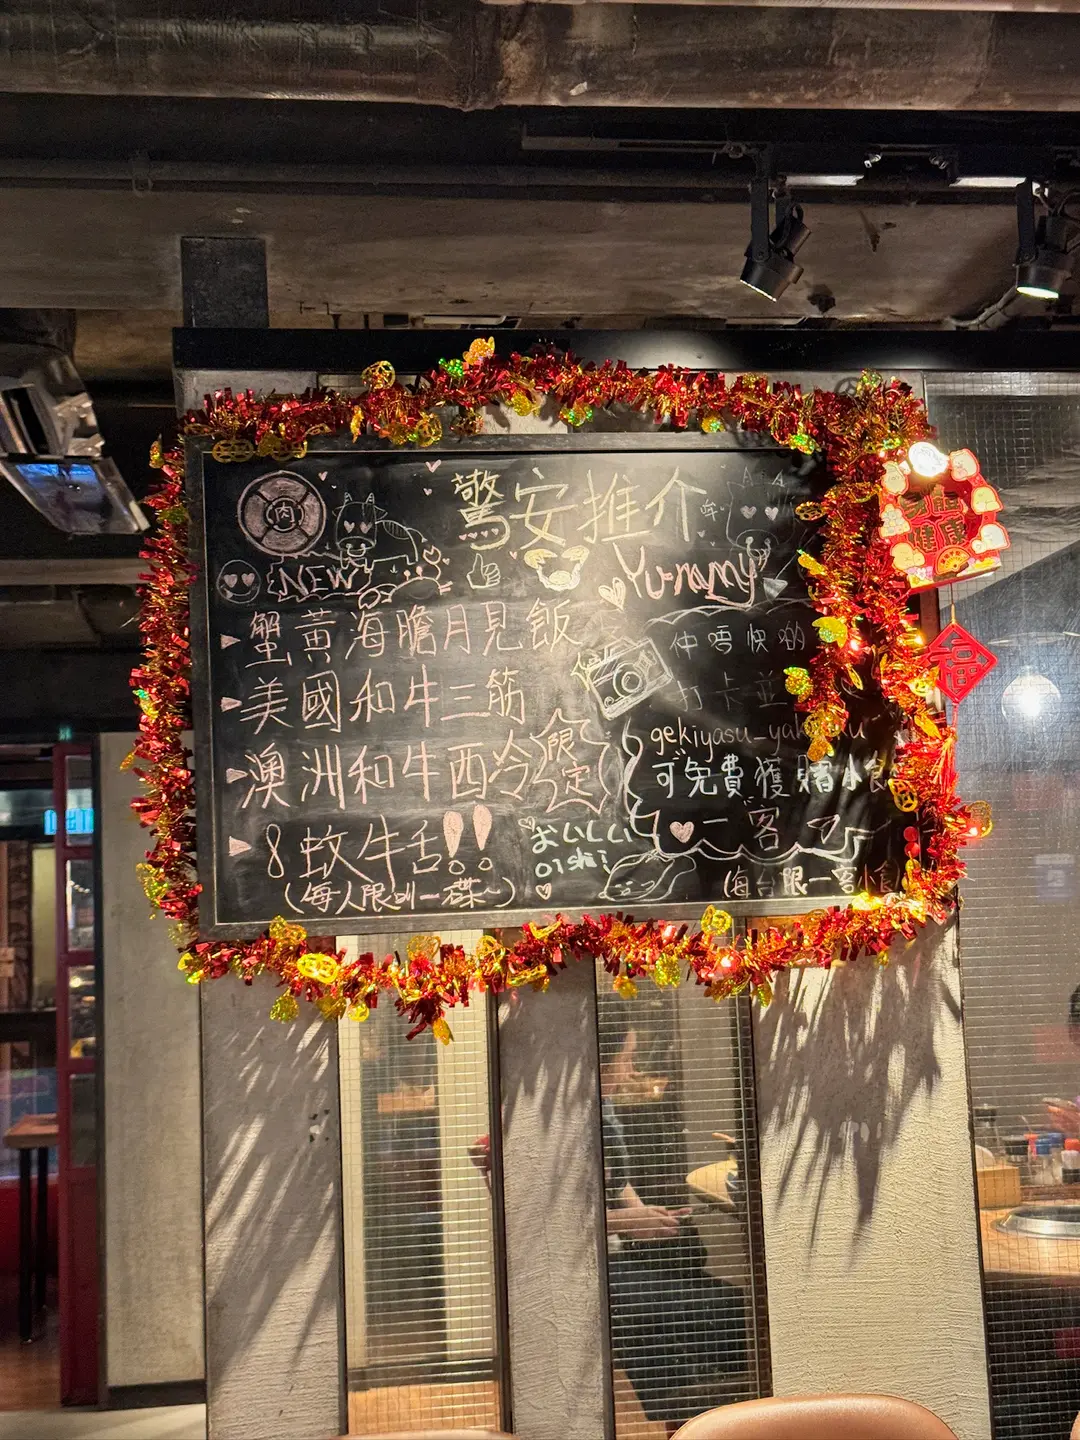 驚安推介
肉
NEW
Yummy
蟹黃海膽月見飯
美國和牛三筋
澳洲和牛西冷
限定
8蚊牛舌!!
(每人限叫一碟~)
おいしい
oishi!
仲唔快啲
打卡並
可免費獲贈小食
一客
(每台限一客小食
身體
健康
福